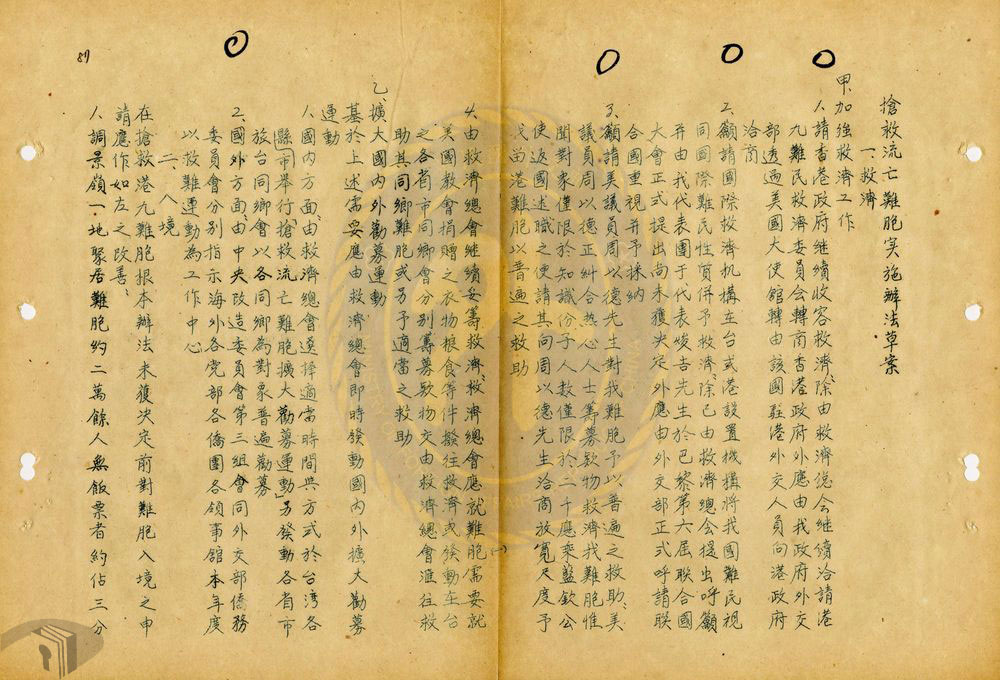 搶救流亡難胞实施辦法草案
一、救濟
甲、加強救濟工作
1.請香港政府继續收容救濟、除由救濟總会継續洽請港
九難民救濟委員会轉商香港政府外應由我政府外交
部透過美國大使館轉由該國駐港外交人員向港政府
洽商
2.籲請國際救濟机構在台或港設置機構將我國難民視
同國際難民性質併予救濟、除已由救濟總会提出呼籲
并由我代表團于代表焌吉先生於巴黎第六屆联合國
大會正式提出尚未獲決定外應由外交部正式呼請联
合國重視并予採納
3.籲請美議員周以德先生對我難胞予以普遍之救助、美
議員周以德正糾合热心人士籌募欵物救濟我難胞惟
聞對象僅限於知識份子人數僅限於二千應乘藍欽公
使返國述職之便請其向周以德先生洽商放寬尺度予
留港難胞以普遍之救助
4.由救濟總會継續妥籌救濟、救濟總會應就難胞需要就
美國教會捐贈之衣物粮食等件撥往救濟或發動在台
之各省市同鄉會分别籌募欵物交由救濟總會滙往救
助其同鄉難胞或另予適當之救助
乙、擴大國内外勸募運動
基於上述需要應由救濟總會即時發動國内外擴大勸募
運動
1.國内方面、由救濟總會選擇適當時間與方式於台湾各
縣市举行搶救流亡難胞擴大勸募運動」另發動各省市
旅台同鄉會以各同鄉為對象普遍勸募
2.國外方面、由中央改造委員會第三組會同外交部僑務
委員會分别指示海外各党部各僑團各領事館本年度
以救難運動為工作中心
二、入境
在搶救港九難胞根本辦法未獲决定前對難胞入境之申
請應作如左之改善、
1.調景嶺一地聚居難胞約二萬餘人無飯票者約佔三分
(一)